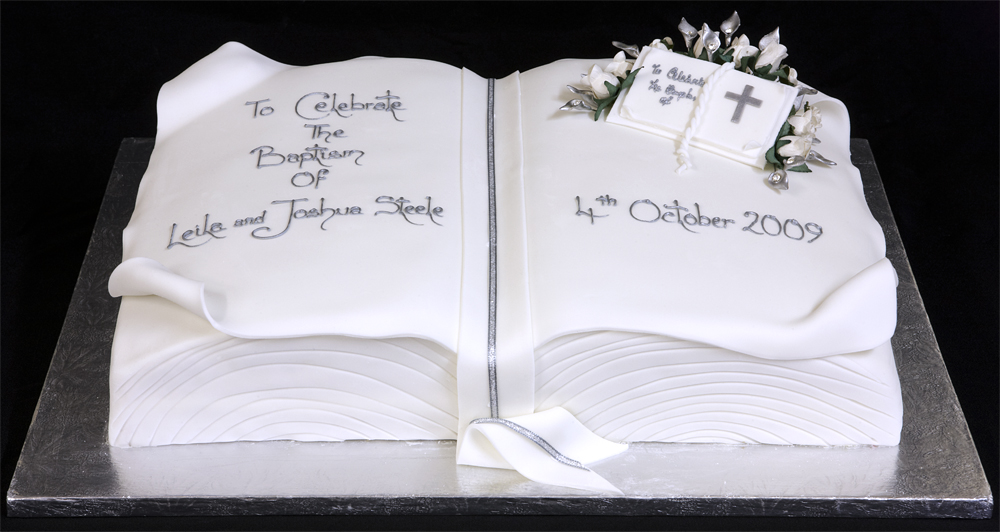 To Celebrate
The
Baptism
Of
Leila and Joshua Steele
4th October 2009
To Celebrate
The Baptism
of